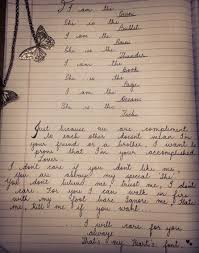 I am the
Gun
She is the
Bullet
I am the
Rain
She is the
Thunder
I am the
Book
She is the
Page
I am the
Ocean
She is the
Tide
Just because we are compliment
to each other doesnt mean I'm
your friend or a brother. I want to
prove that I'm your accomplished
Lover
I don't care if you don't like me,
You are always my special She
You don't believe me, trust me, I don't
care. For you I can walk on fire
with my foot bare. Ignore me, Hate
me, Kill me if you want...
I will care for you
always
That's my Heart's font.